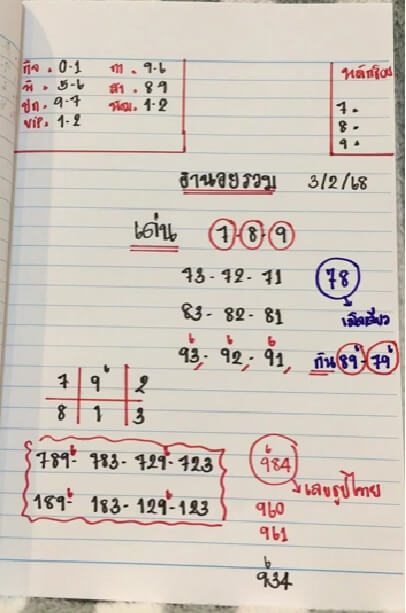 กิจ. 0-1 กา. 9-6
พิ. 5-6 สำ. 89
ปก. 9-7 พัฒ. 1-2
VIP. 1-2
หลักร้อย
7-
8-
9-
ฮานอยรวม 3/2/68
เด่น 7-8-9
73-72-71 78
83-82-81 เม็ดเดียว
93-92-91 กัน 89-79
7 9 2
8 1 3
789-783-729-723
189-183-129-123
984
เลขธูปไทย
960
961
934